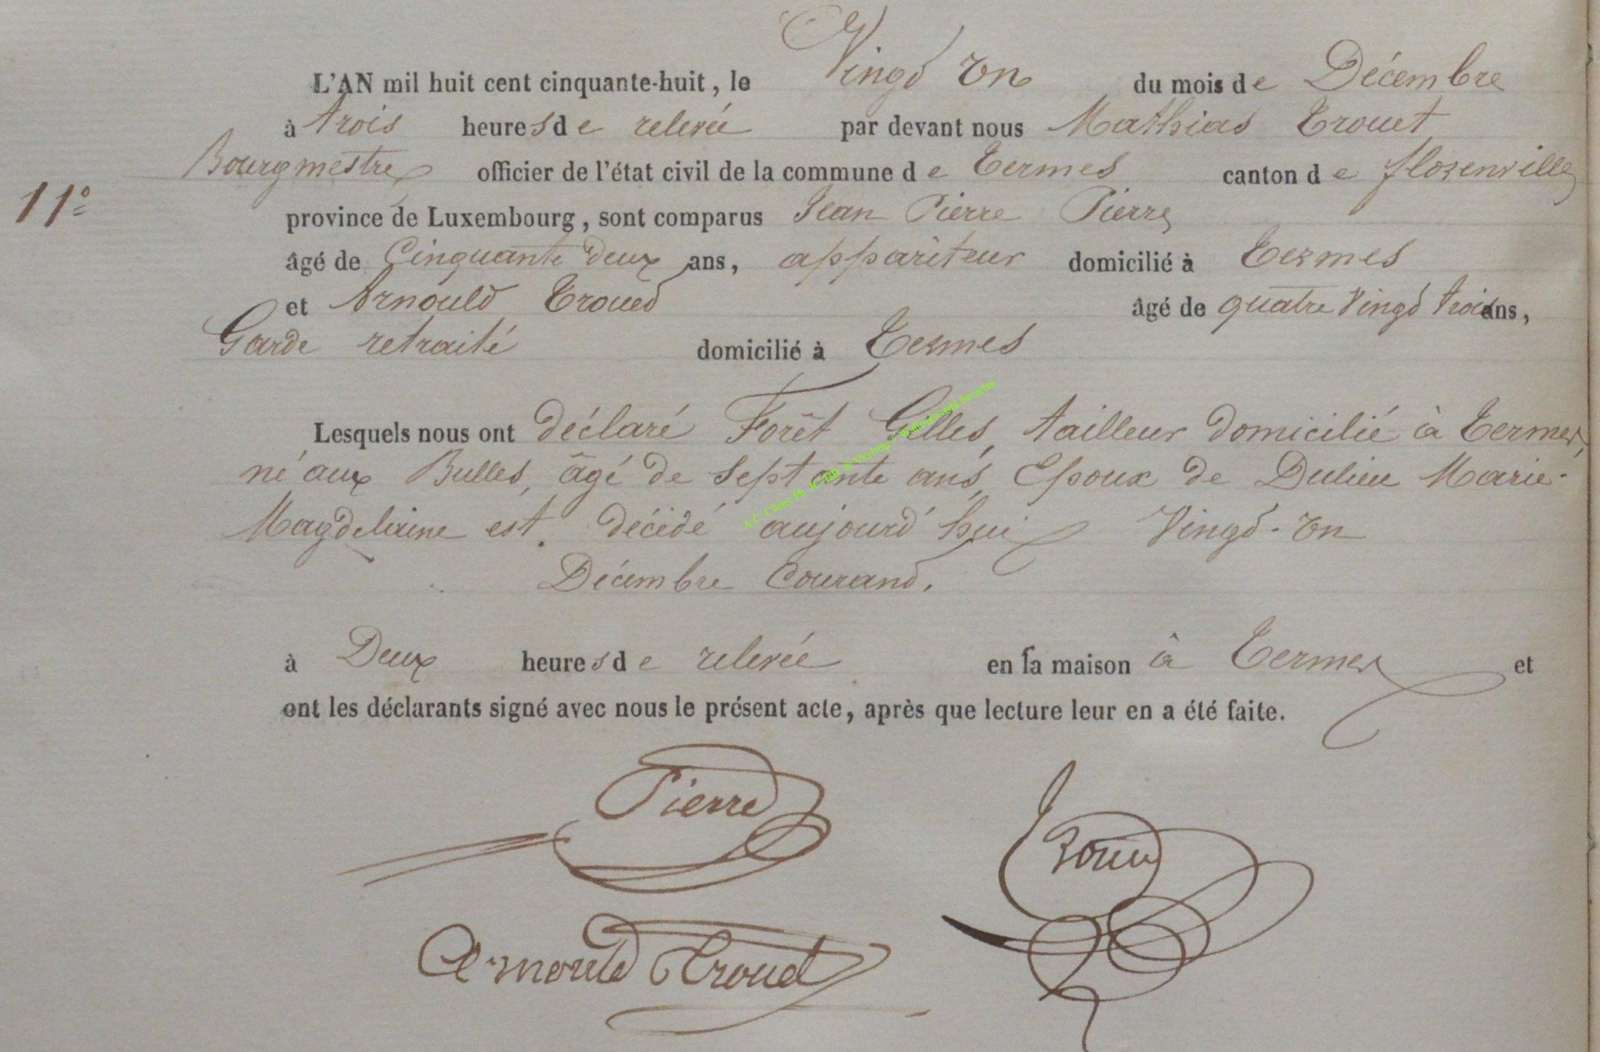 L'AN mil huit cent cinquante-huit, le Vingd Un du mois de Décembre
à trois heures de relevée par devant nous Mathias Trouet
Bourgmestre officier de l'état civil de la commune de Termes canton de florenville
11°
province de Luxembourg, sont comparus Jean Pierre Pierre
âgé de Cinquante deux ans, appariteur domicilié à Termes
et Arnould Troued âgé de quatre Vingd trois ans,
Garde retraité domicilié à Termes
Lesquels nous ont déclaré Forêt Gilles, tailleur domicilié à Termes,
né aux Bulles, âgé de Septante ans, Epoux de Dulieu Marie-
Magdelaine est décédé aujourd'hui Vingd-Un
Décembre Courand.
à Deux heures de relevée en sa maison à Termes et
ont les déclarants signé avec nous le présent acte, après que lecture leur en a été faite.
Pierre
Arnould Trouet